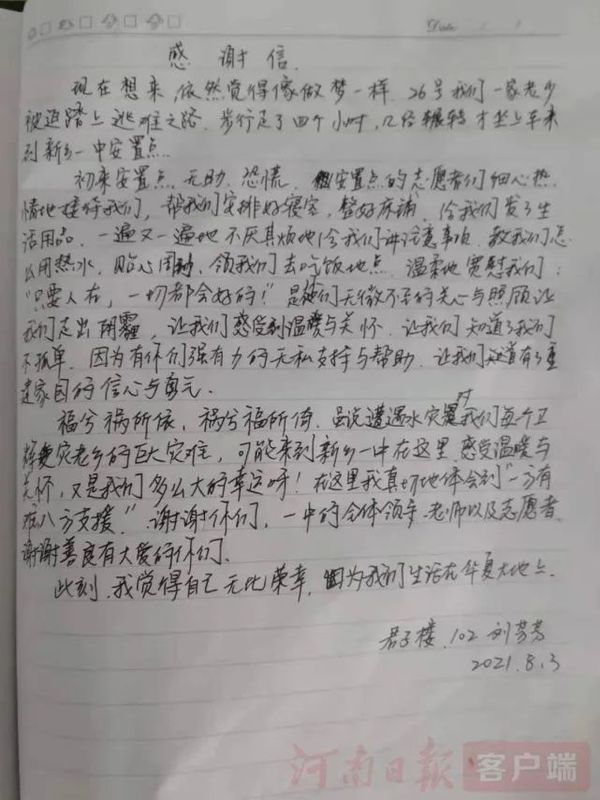 Date
感谢信.
现在想来,依然觉得像做梦一样. 26号我们一家老少
被迫踏上逃难之路. 步行走了四个小时,几经辗转才坐上车来
到新乡一中安置点.
初来安置点, 无助、恐慌. 安置点的志愿者们细心热
情地接待我们, 帮我们安排好寝室, 整好床铺, 给我们发了生
活用品. 一遍又一遍地不厌其烦地给我们讲注意事项, 教我们怎
么用热水, 贴心周到, 领我们去吃饭地点. 温柔地宽慰我们:
“只要人在, 一切都会好的!” 是她们无微不至的关心与照顾让
我们走出阴霾, 让我们感受到温暖与关怀. 让我们知道了我们
不孤单. 因为有你们强有力的无私支持与帮助. 让我们有了重
建家园的信心与勇气.
福兮祸所依, 祸兮福所倚. 虽说遭遇水灾是对我们每个卫
辉受灾老乡的巨大灾难, 可能来到新乡一中在这里感受温暖与
关怀, 又是我们多么大的幸运呀! 在这里我真切地体会到“一方有
难八方支援.” 谢谢你们, 一中的全体领导、老师以及志愿者.
谢谢善良有大爱的你们.
此刻. 我觉得自己无比荣幸. 因为我们生活在华夏大地上.
君子楼. 102 刘芳芳
2021.8.3
河南日报 客户端